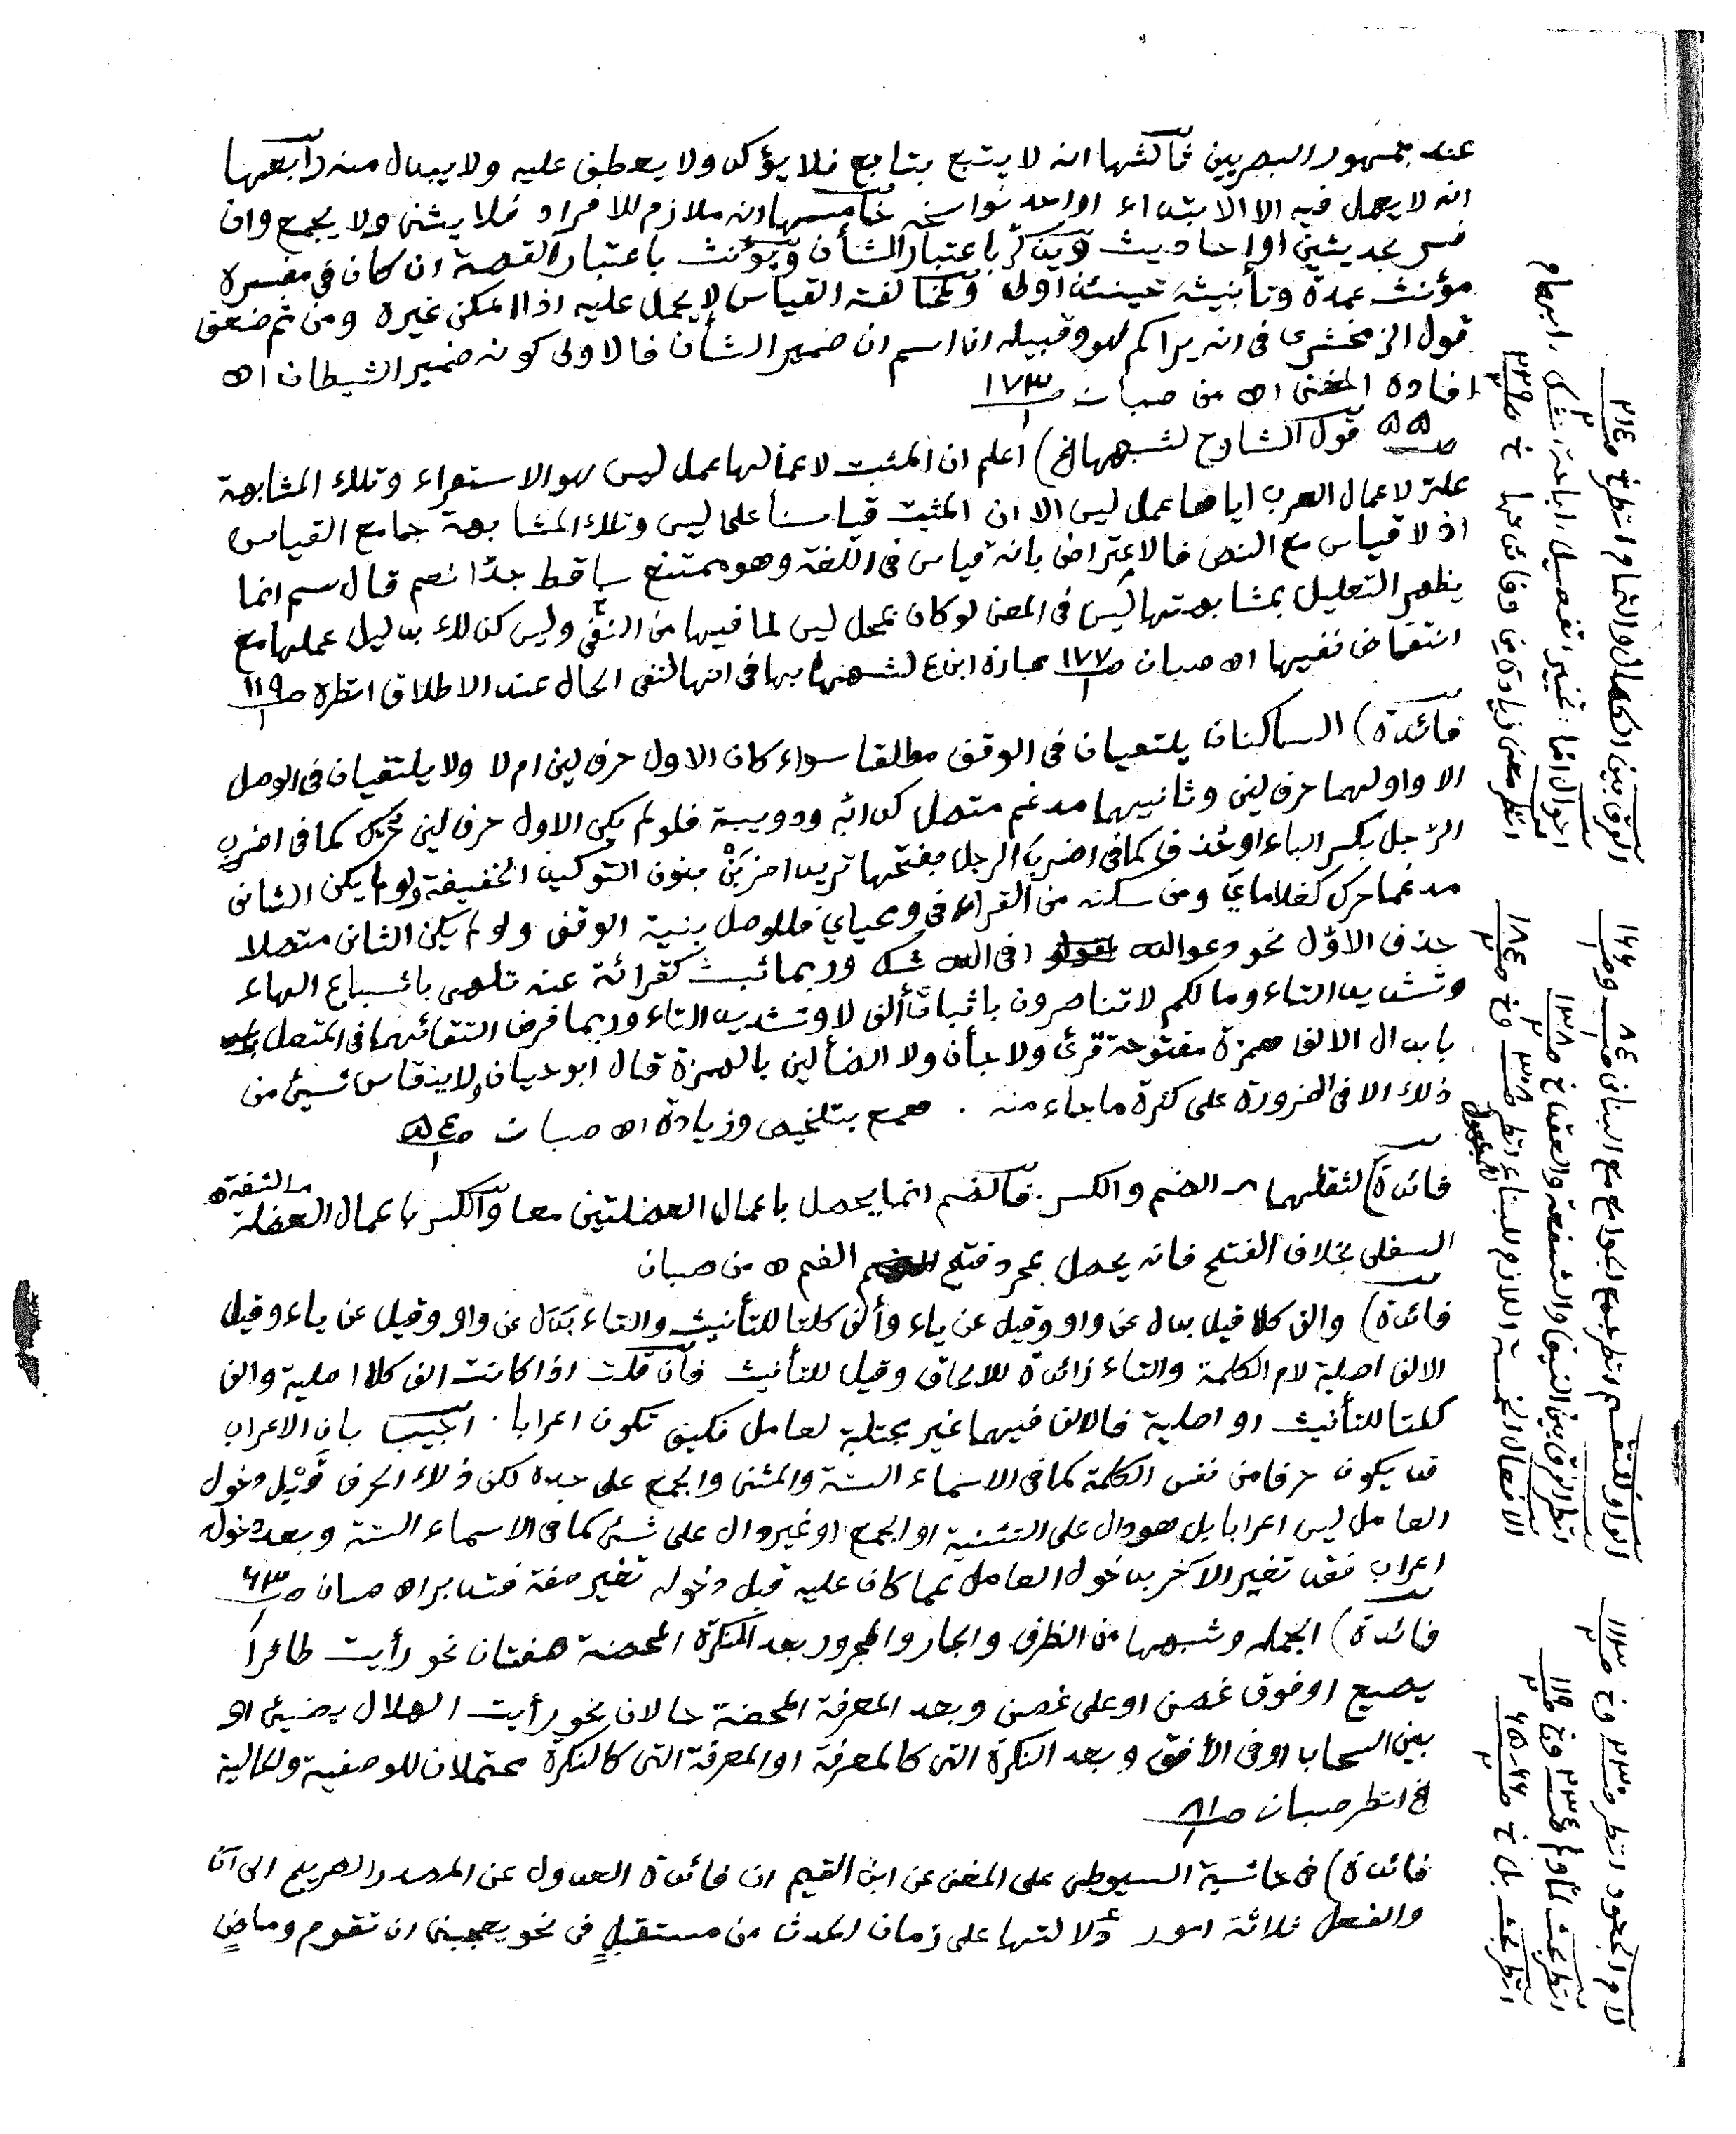 عند جمهور البصريين ثالثها انه لا يتبع بتابع فلا يؤكد ولا يعطف عليه ولا يبدل منه رابعها
انه لا يعمل فيه الا الابتداء او احد نواسخه خامسها انه ملازم للافراد فلا يثنى ولا يجمع وان
فسر بحديثين او احاديث ويذكر باعتبار الشأن ويؤنث باعتبار القصة ان كان في مفسره
مؤنث عمدة وتأنيثه حينئذ اولى ولمخالفته القياس لا يحمل عليه اذا امكن غيره ومن ثم ضعف
قول الزمخشرى فى انه يراكم هو وقبيله ان اسم ان ضمير الشأن فالاولى كونه ضمير الشيطان اه
افاده المغنى اه من صبان صـ١٧٣/١
صـ٥٥ قول الشارح لشبهها الخ) اعلم ان المثبت لاعمالها عمل ليس هو الاستقراء وتلك المشابهة
علة لاعمال العرب اياها عمل ليس لا ان المثبت قياسنا على ليس وتلك المشابهة جامع القياس
اذ لا قياس مع النص فالاعتراض بانه قياس فى اللغة وهو ممتنع ساقط جدّا نعم قال سم انما
يظهر التعليل بمشابهتها ليس فى المعنى لو كان عمل ليس لما فيها من النفى وليس كذلك بدليل عملها مع
انتقاض نفيها اه صبان صـ١٧٧/١ عبارة ابن ع لشبهها بها فى انها لنفى الحال عند الاطلاق انظره صـ١١٩/١
فائدة) الساكنان يلتقيان فى الوقف مطلقا سواء كان الاول حرف لين ام لا ولا يلتقيان فى الوصل
الا واولهما حرف لين وثانيهما مدغم متصل كدابّه ودويبة فلو لم يكن الاول حرف لين حرّك كما فى اضرب
الرّجل بكسر الباء او حذف كما فى اضربَ الرجل بفتحها تريد اضربَنْ بنون التوكيد الخفيفة ولو لم يكن الثانى
مدغما حرك كغلاماىَ ومن سكنه من القراء فى ومحياي فللوصل بنية الوقف ولو لم يكن الثانى متصلا
حذف الاوّل نحو دعوا الله افى الله شك وربما ثبت كقرائة عنه تلهى باشباع الهاء
وتشديد التاء وما لكم لا تناصرون باثبات ألف لا وتشديد التاء وربما فرض التقائهما فى المتصل
بابدال الالف همزة مفتوحة قرئ ولا جأن ولا الضألين بالهمزة قال ابو حيان ولا ينقاس شيئ من
ذلك الا فى الضرورة على كثرة ما جاء منه . همع بتلخيص وزيادة اه صبان صـ٥٤/١
فائدة) لثقلهما اى الضم والكسر . فالضم انما يحصل باعمال العضلتين معا والكسر باعمال العضلة
السفلى بخلاف الفتح فانه يحصل بمجرد فتح الفم اه من صبان
فائدة) والف كلا قيل بدل عن واو وقيل عن ياء وألف كلتا للتأنيث والتاء بدل عن واو وقيل عن ياء وقيل
الالف اصلية لام الكلمة والتاء زائدة للالحاق وقيل للتأنيث فان قلت اذا كانت الف كلا اصلية والف
كلتا للتأنيث او اصلية فالالف فيهما غير مجتلبة لعامل فكيف تكون اعرابا . اجيب بان الاعراب
قد يكون حرفا من نفس الكلمة كما فى الاسماء الستة والمثنى والجمع على حده لكن ذلك الحرف قبل دخول
العامل ليس اعرابا بل هو دال على التثنية او الجمع او غير دال على شئ كما فى الاسماء الستة وبعد دخوله
اعراب فقد تغير الآخر بدخول العامل عما كان عليه قبل دخوله تغير صفة فتدبر اه صبان صـ٦٣/١
فائدة) الجمله وشبهها من الظرف والجار والمجرور بعد النكرة المحضة صفتان نحو رأيت طائراً
يصيح او فوق غصن او على غصن وبعد المعرفة المحضة حالان نحو رأيت الهلال يضيئ او
بين السحاب او فى الأفق وبعد النكرة التى كالمعرفة او المعرفة التى كالنكرة محتملان للوصفية والحالية
الخ انظر صبان صـ٨١/١
فائدة) فى حاشية السيوطى على المغنى عن ابن القيم ان فائدة العدول عن المصدر الصريح الى ان
والفعل ثلاثة امور دلالتها على زمان الحدث من مستقبلٍ فى نحو يعجبنى ان تقوم وماضٍ
الفرق بين الكمال والتمام انظر خ صـ٢١٤/٢
احوال امّا : تخيير، تفصيل، اباحة، شك، ابهام
انظر معنى زيادة من وفائدتها خ صـ٢٣٩/٢
الواو للتقسيم انظر همع الجوامع مع البنانى صـ٨٤
انظر الفرق بين النسق والشفعة والعقد خ صـ١٣٨/٢
الافعال الخمسة اللازم للبناء المجهول انظر صـ٣٥٨ وخ صـ١٨٤/٢
لام الجحود انظر صـ٢٣٥ وخ صـ١١٣/٢
انظر بحث لمّا ولم صـ٢٣٤ وخ صـ١١٩/٢
انظر بحث بل خ صـ٦٥-٦٦/٢